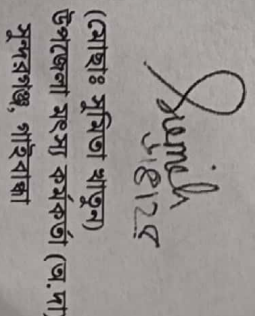 Sumith
(মোছাঃ সুমিতা খাতুন)
উপজেলা মৎস্য কর্মকর্তা (অ.দা)
সুন্দরগঞ্জ, গাইবান্ধা